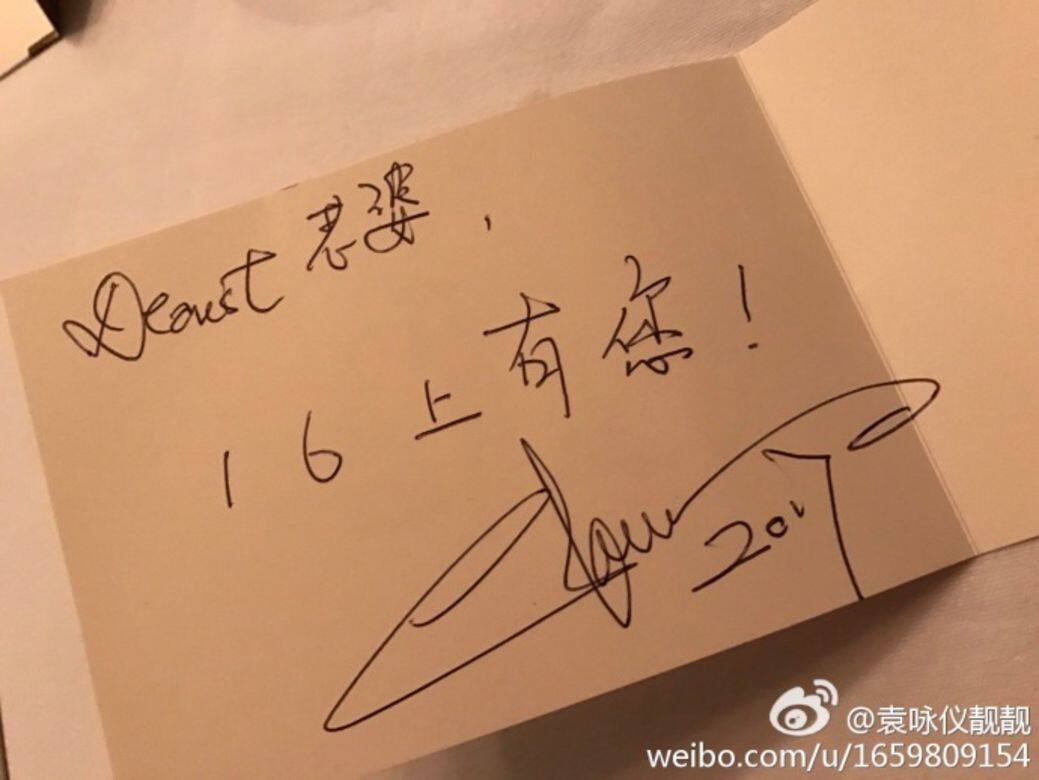 Dearest 老婆,
16上有您!
2017
@袁咏仪靓靓
weibo.com/u/1659809154